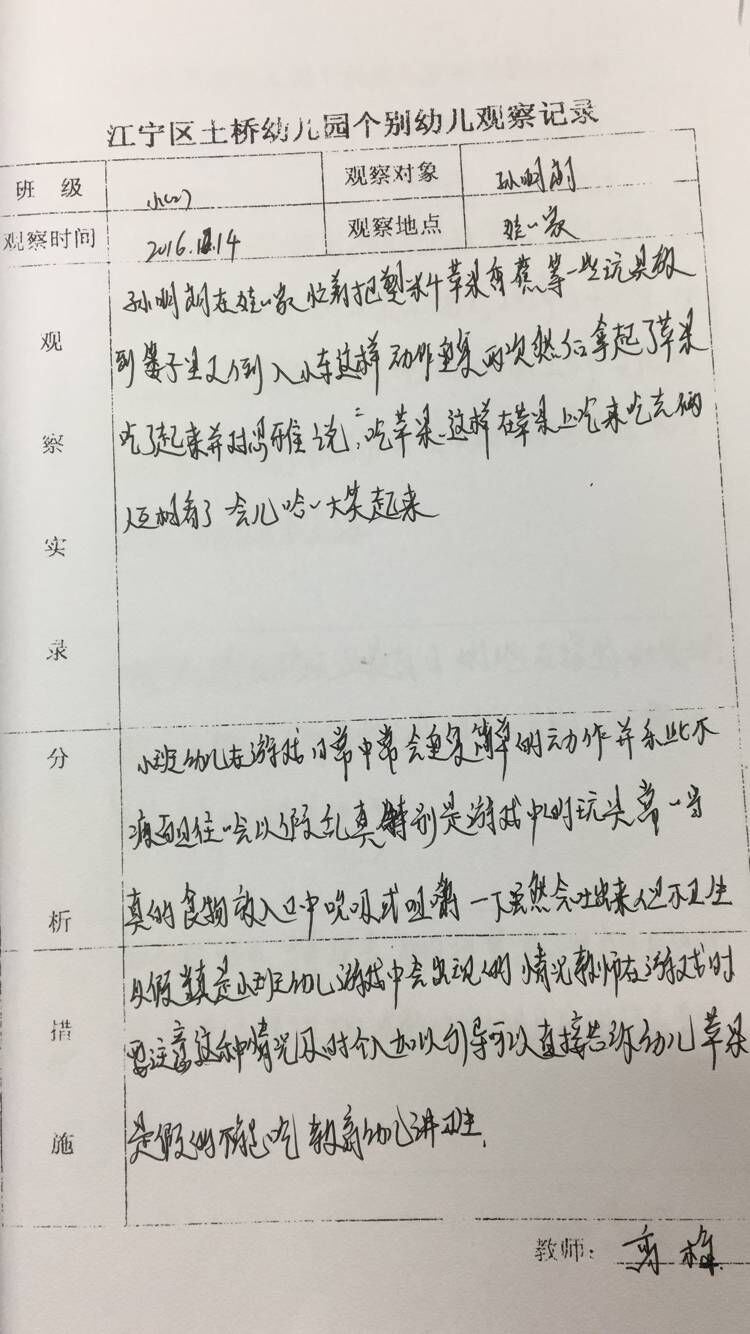 江宁区土桥幼儿园个别幼儿观察记录
班 级 小(2) 观察对象 孙明朗
观察时间 2016.12.14 观察地点 娃娃家
观察实录
孙明朗在娃娃家忙着把塑料苹果香蕉等一些玩具放
到篮子里又倒入小车这样动作重复两次然后拿起了苹果
吃了起来并对思雅说:"吃苹果"这样在苹果上吃来吃去俩
人互相看了一会儿哈哈大笑起来
分析
小班幼儿在游戏日常中常会重复简单的动作并乐此不
疲而且往往会以假乱真特别是游戏中的玩具常常当
真的食物放入口中吮吸或咀嚼一下虽然会吐出来但不卫生
措施
以假当真是小班幼儿游戏中会出现的情况教师在游戏时
要注意这种情况及时介入加以引导可以直接告诉幼儿苹果
是假的不能吃 教育幼儿讲卫生.
教师: